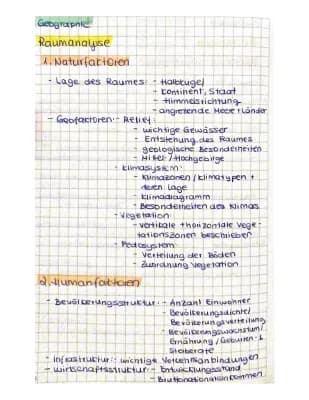 Geographie
Raumanalyse
1. Naturfaktoren
- Lage des Raumes: - Halbkugel
- Kontinent, Staat
- Himmelsrichtung
- angrenzende Meere + Länder
- Geofaktoren: - Relief:
- wichtige Gewässer
- Entstehung des Raumes
- geologische Besonderheiten
- Mittel-/Hochgebirge
- Klimasystem:
- Klimazonen / Klimatypen +
deren Lage
- Klimadiagramm
- Besonderheiten des Klimas
- Vegetation
- vertikale + horizontale Vege-
tationszonen beschreiben
- Pedosystem
- Verteilung der Böden
- Zuordnung Vegetation
2. Humanfaktoren
- Bevölkerungsstruktur: - Anzahl Einwohner
- Bevölkerungsdichte/
Bevölkerungsverteilung
- Bevölkerungswachstum/
Ernährung / Geburten- &
Sterberate
- Infrastruktur: wichtige Verkehrsanbindungen
- Wirtschaftsstruktur: - Entwicklungsstand
- Bruttonationaleinkommen